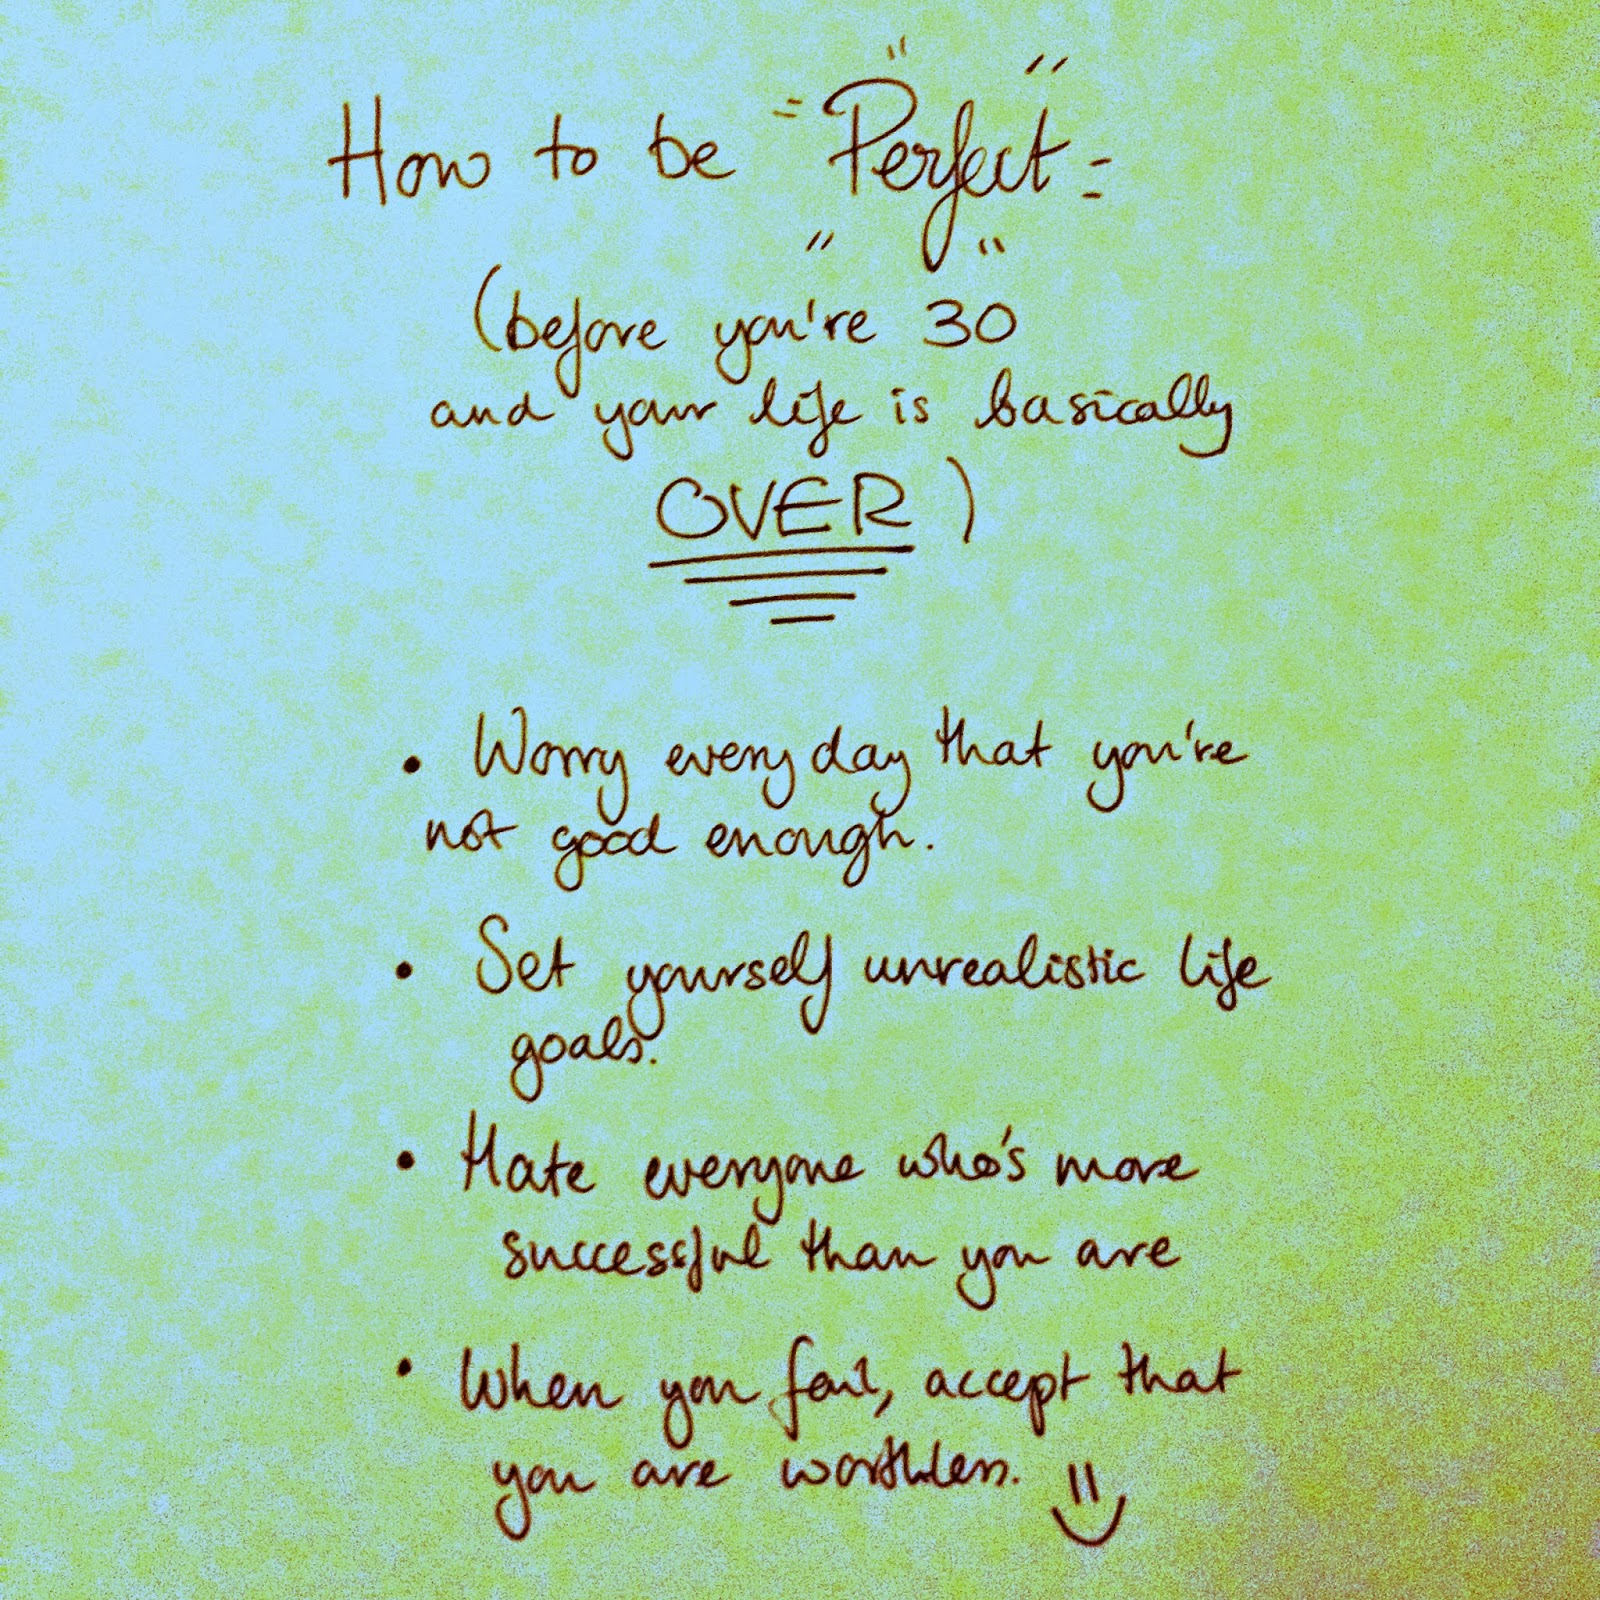 How to be "Perfect"
(before you're 30
and your life is basically
OVER)
• Worry every day that you're
not good enough.
• Set yourself unrealistic life
goals.
• Hate everyone who's more
successful than you are
• When you fail, accept that
you are worthless.